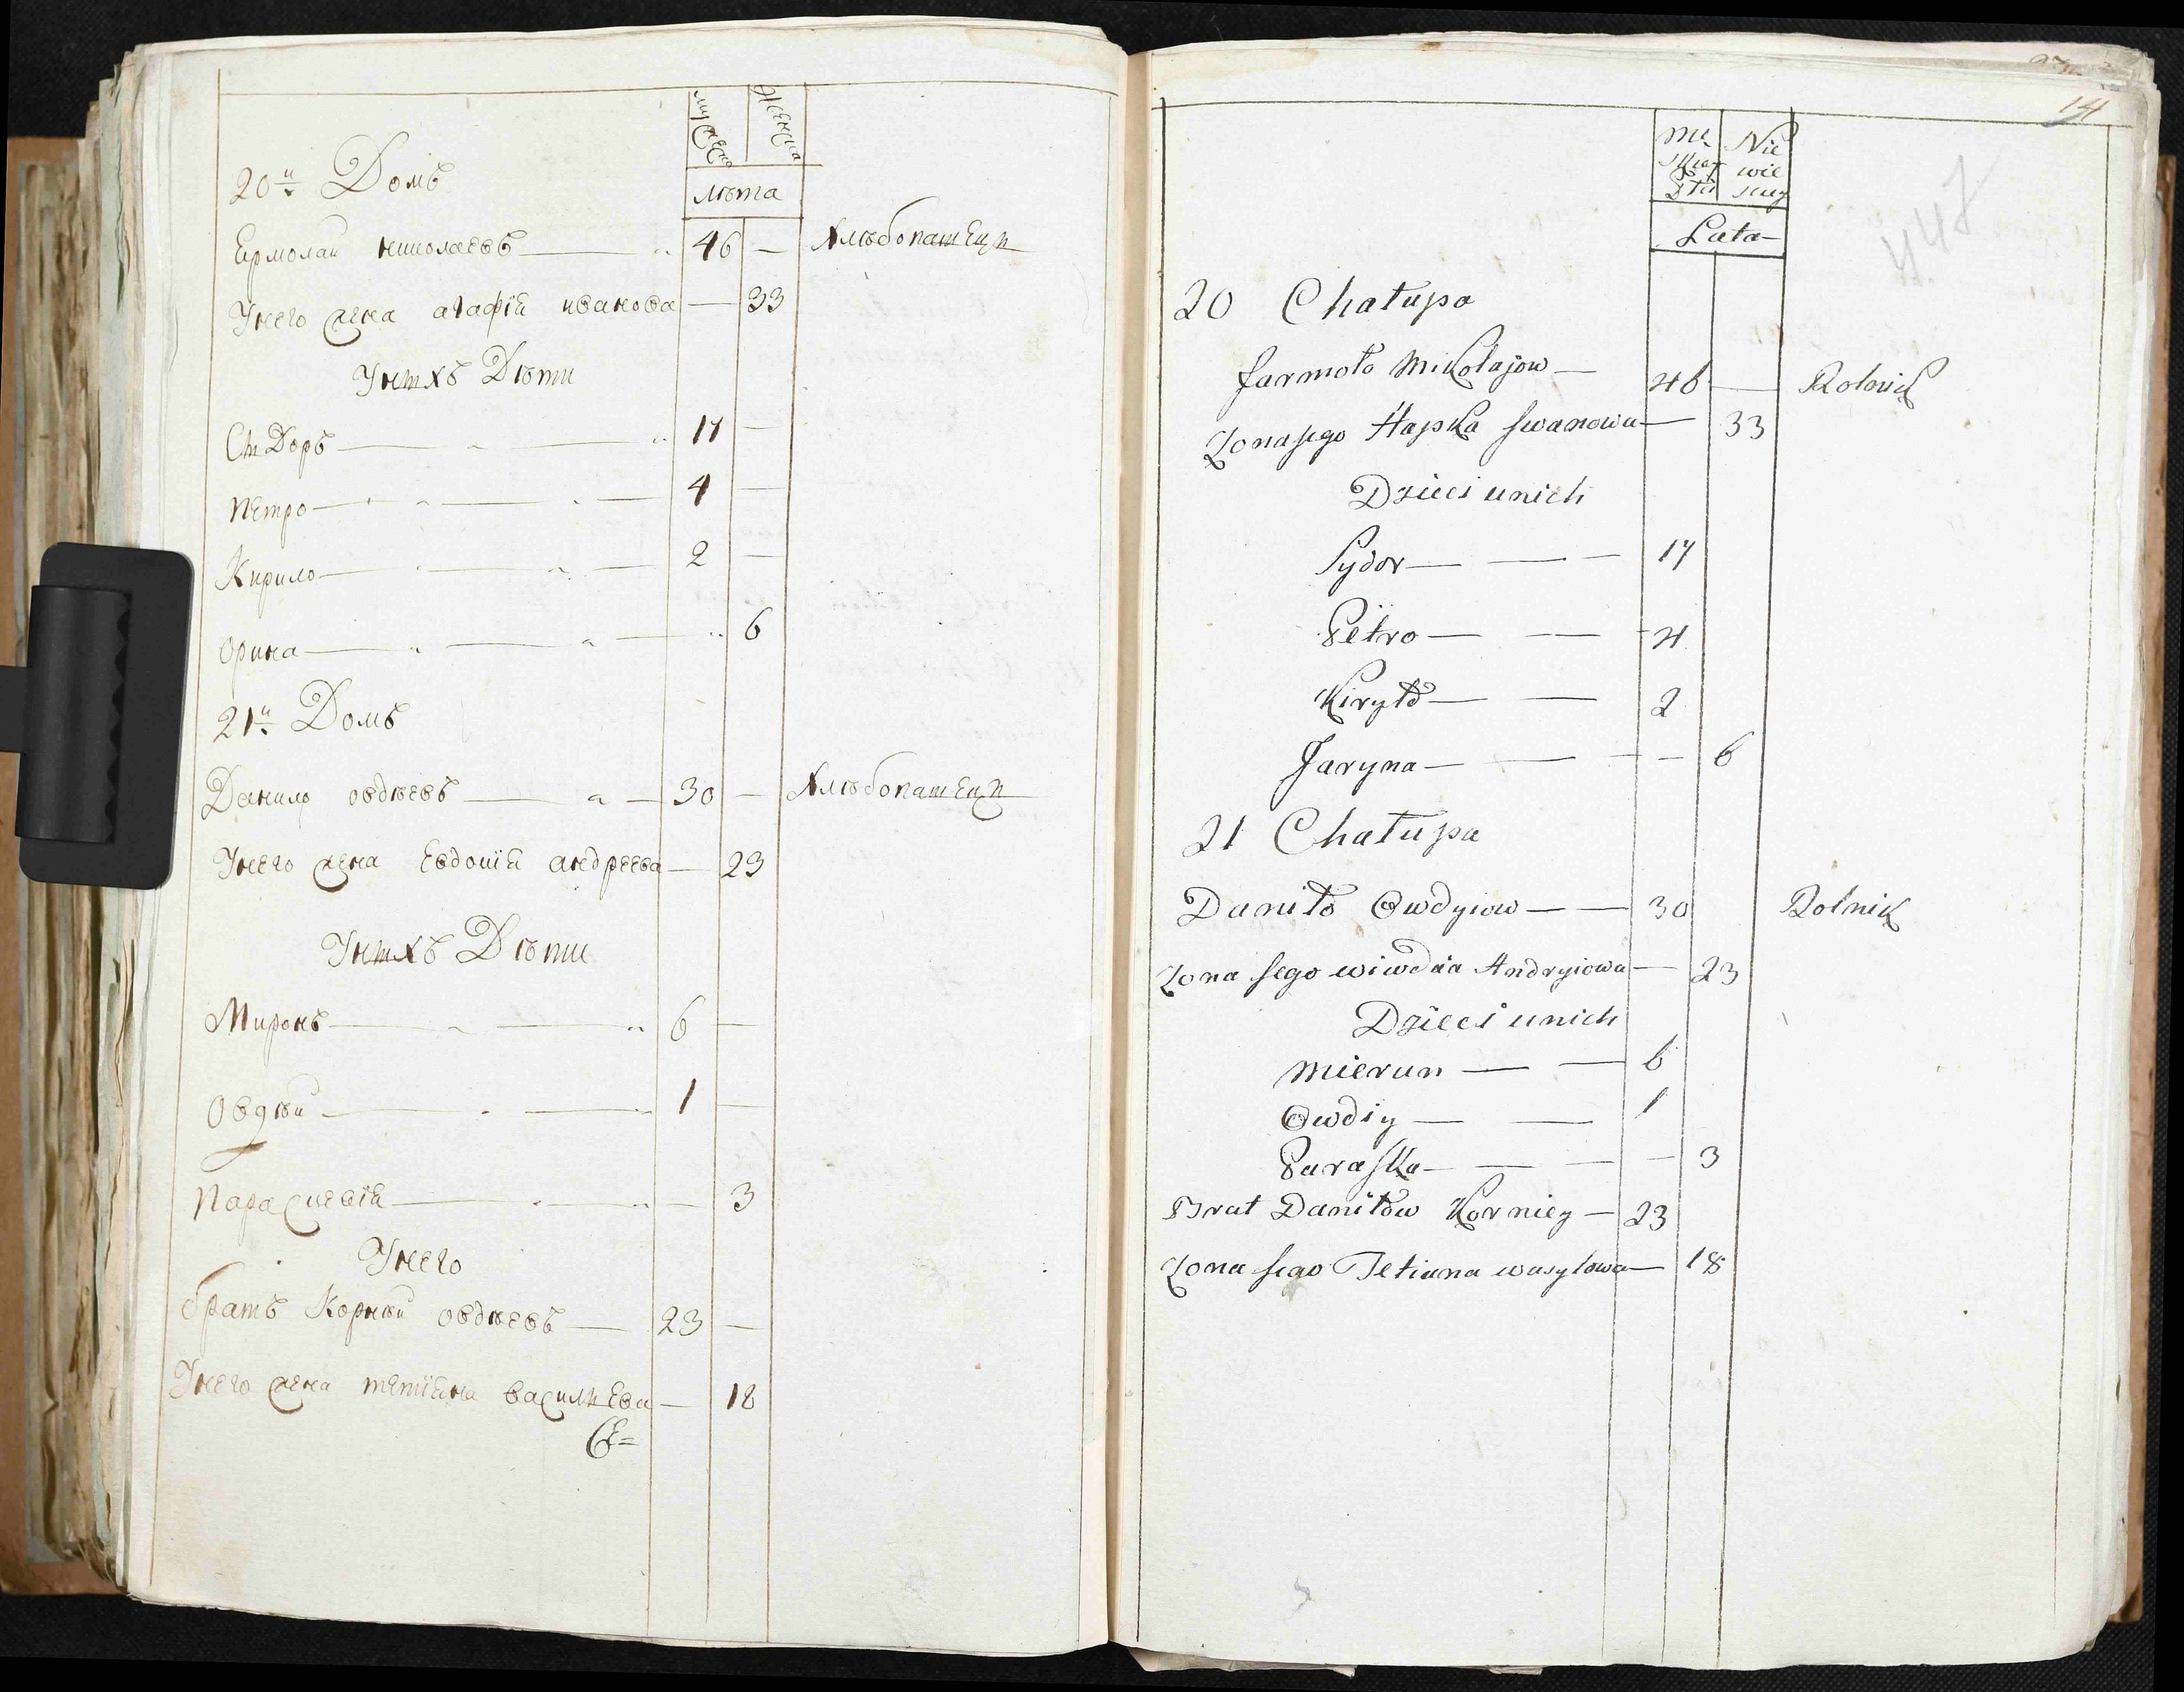 мужеска
женска
20й Домъ
лѣта
Ермолай николаевъ 46 — хлѣбопашецъ
Унего жена агафія иванова — 33
Унихъ Дѣти
Сидоръ 17 —
петро 4 —
Кирило 2 —
орина 6
21й Домъ
Данило овдѣевъ 30 — хлѣбопашецъ
Унего жена Евдокія андреева — 23
Унихъ Дѣти
Миронъ 6 —
Овдѣй 1 —
параскевія — 3
Унего
братъ Корнѣй овдѣевъ — 23 —
Унего жена тетіяна василъева — 18
Се=
14
447
Mę
skey
Płci
Nie
wie
sciey
Lata
20 Chałupa
Jarmoło Mikołajow — 46 — Rolnik
Zona jego Hapka Jwanowa — 33
Dzieci unich
Sydor — — 17
Petro — — 4
Kiryło — — 2
Jaryna — — — 6
21 Chałupa
Daniło Owdyiow — — 30 Rolnik
Zona jego wiwdia Andryiowa — 23
Dzieci unich
Mierun — — 6
Owdiy — — 1
Paraska — — — 3
Brat Daniłow Korniey — 23
Zona jego Tetiana wasylowa — 18